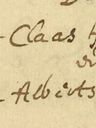 - Claas
- Alberts